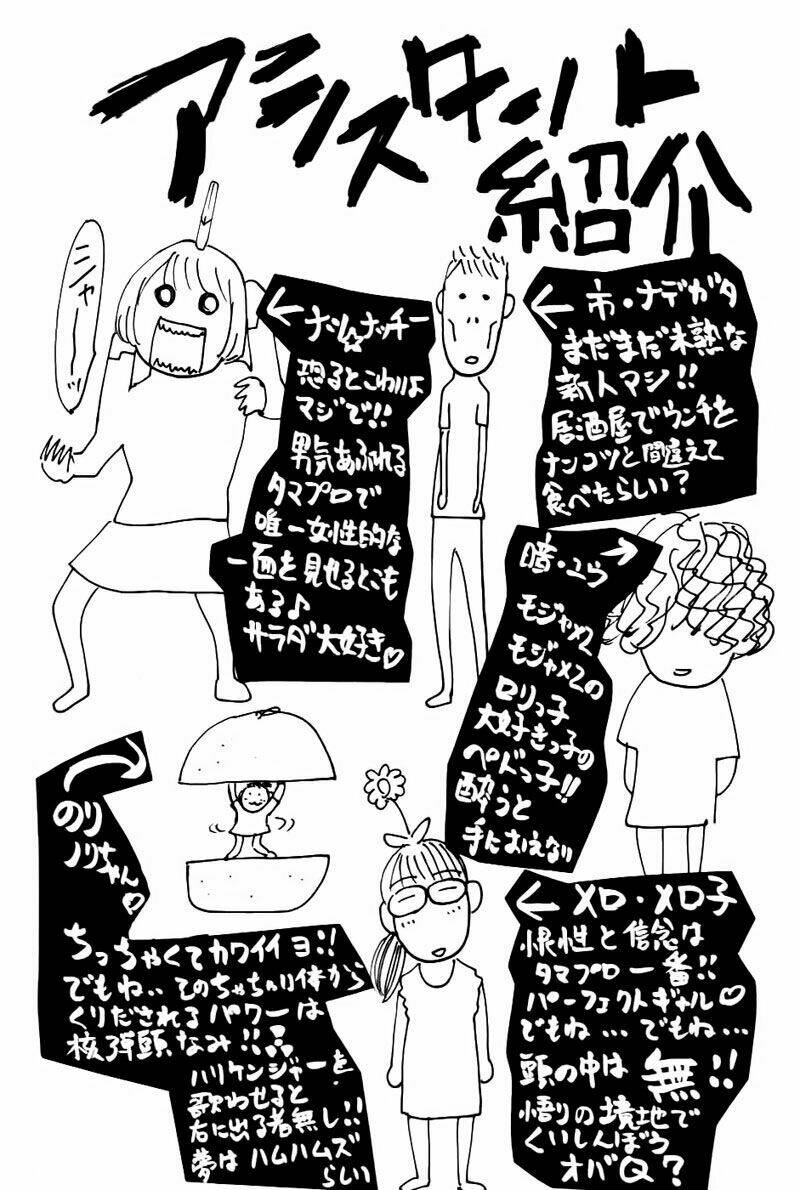 アシスタント
紹介
← 市・ナデガタ
まだまだ未熟な
新人マシ!!
居酒屋でウンチと
ナンコツと間違えて
食べたらしい?
ニャーーッ
← ナシ☆ナッチー
恐るとこわいよ
マジで!!
男気あふれる
タマプロで
唯一女性的な
一面を見せるとこも
ある♪
サラダ大好き♡
暗・ユウ →
モジャメン
モジャメンの
ロリっ子
大好きっ子の
ペドっ子!!
酔うと
手におえない
のり
ノリちゃん♡
ちっちゃくてカワイイヨ!!
でもね‥そのちっちゃい体から
くりだされるパワーは
核弾頭なみ!!
ハリケンジャーを
歌わせると
右に出る者無し!!
夢はハムハムズ
らしい
← メロ・メロ子
根性と信念は
タマプロ一番!!
パーフェクトギャル♡
でもね…でもね…
頭の中は無!!
悟りの境地で
くいしんぼう
オバQ?